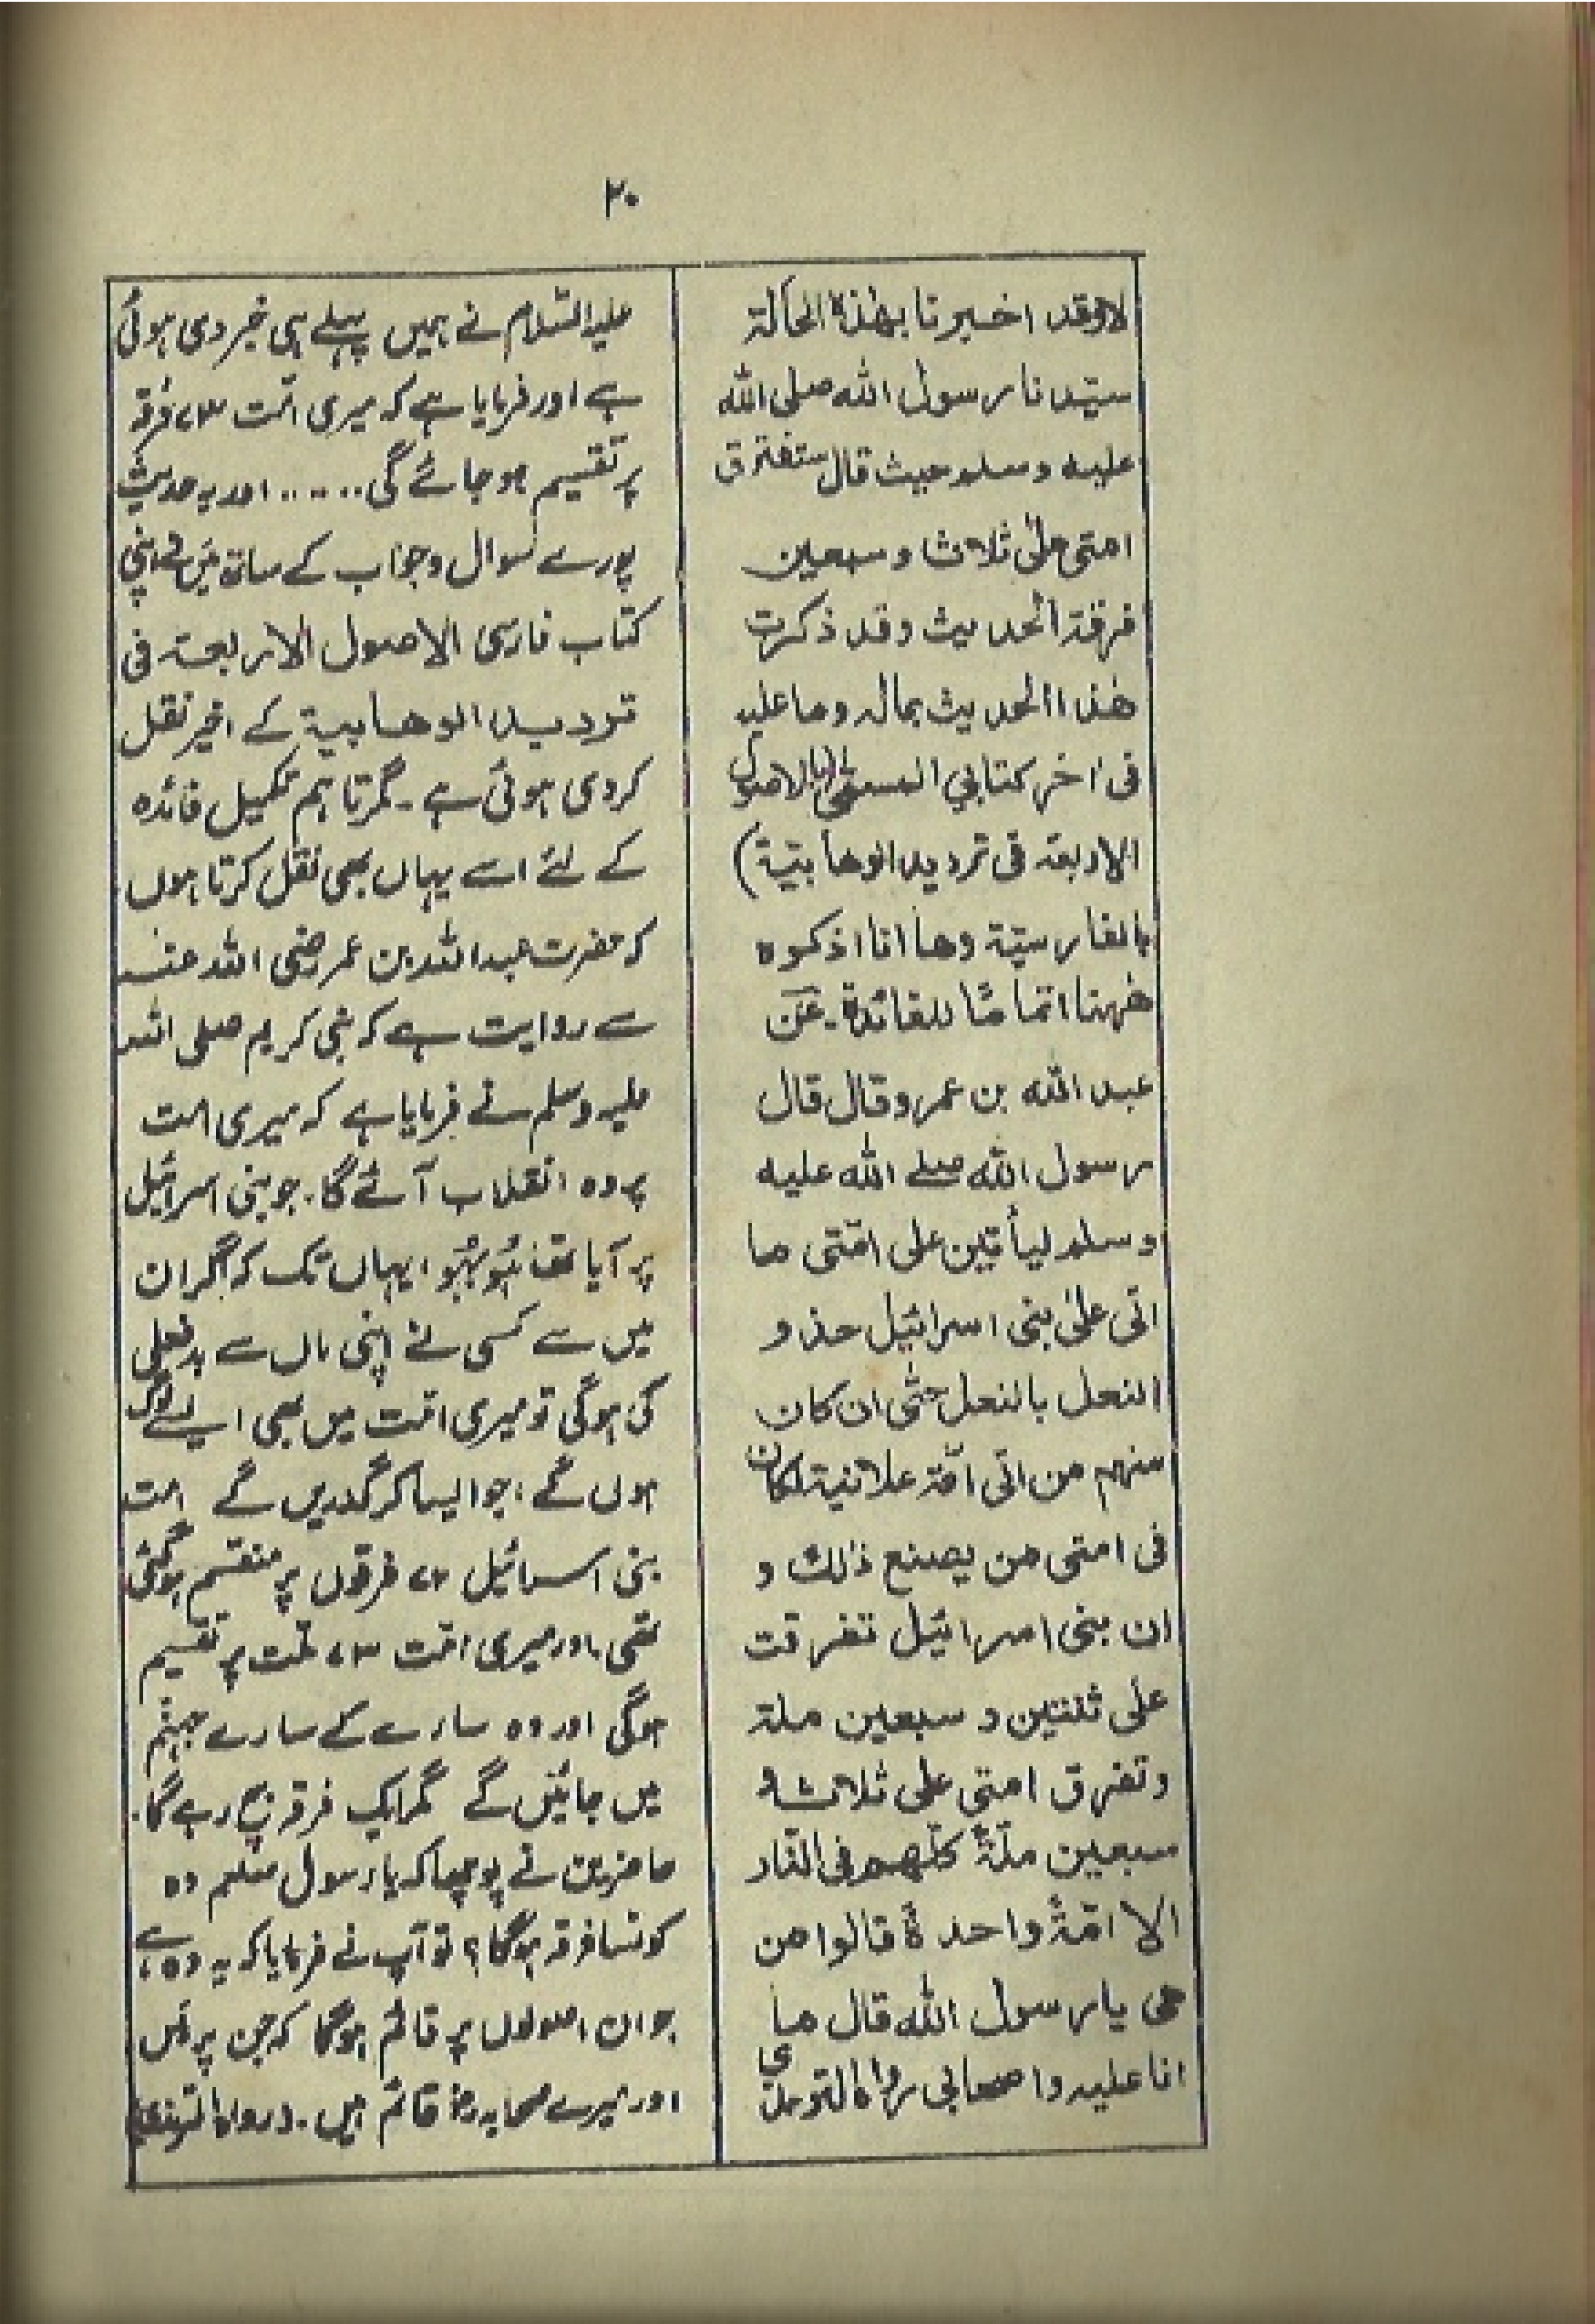 ۲۰
لا وقد اخبرنا بهٰذه الحالة
سیّدنا رسول الله صلی الله
علیه وسلم حیث قال ستفترق
امتی علیٰ ثلاث و سبعین
فرقة الحدیث وقد ذکرت
هٰذا الحدیث بماله وما علیه
فی اٰخر کتابی المسمّٰی بالاصول
الاربعة فی تردید الوهابیّة)
بالفارسیّة وها انا اذکره
هٰهنا اتمامًا للفائدة۔ عن
عبد الله بن عمرو قال قال
رسول الله صلے الله علیه
وسلم لیأتین علی امّتی ما
اتی علیٰ بنی اسرائیل حذو
النعل بالنعل حتّٰی ان کان
منهم من اتی امّه علانیة لکان
فی امتی من یصنع ذٰلك و
ان بنی اسرائیل تفرقت
علی ثنتین و سبعین ملة
وتفرق امتی علی ثلاث و
سبعین ملّةً کلّهم فی النّار
الا امّةً واحدةً قالوا من
هی یا رسول الله قال ما
انا علیه واصحابی رواه الترمذی
علیہ السّلام نے ہمیں پہلے ہی خبر دی ہوئی
ہے اور فرمایا ہے کہ میری امّت ۷۳ فرقہ
پر تقسیم ہو جائے گی ..... اور یہ حدیث
پورے سوال و جواب کے ساتھ میں نے اپنی
کتاب فارسی الاصول الاربعة فی
تردید الوهابیة کے اخیر نقل
کردی ہوئی ہے۔ مگر تاہم تکمیل فائدہ
کے لئے اسے یہاں بھی نقل کرتا ہوں
کہ حضرت عبداللہ بن عمر رضی اللہ عنہ
سے روایت ہے کہ نبی کریم صلی اللہ
علیہ وسلم نے فرمایا ہے کہ میری امت
پر وہ انقلاب آئے گا۔ جو بنی اسرائیل
پر آیا تھا ہُو بہُو، یہاں تک کہ اگر ان
میں سے کسی نے اپنی ماں سے بدفعلی
کی ہوگی تو میری امّت میں بھی ایسے لوگ
ہوں گے، جو ایسا کر گذریں گے امت
بنی اسرائیل ۷۲ فرقوں پر منقسم ہوگئی
تھی۔ اور میری امّت ۷۳ ملّت پر تقسیم
ہوگی اور وہ سارے کے سارے جہنّم
میں جائیں گے مگر ایک فرقہ بچ رہے گا۔
حاضرین نے پوچھا کہ یا رسول صلعم وہ
کونسا فرقہ ہوگا؟ تو آپ نے فرمایا کہ یہ وہ ہے،
جو ان اصولوں پر قائم ہوگا کہ جن پر میں
اور میرے صحابہ رضؓ قائم ہیں۔ (رواہ الترمذی)